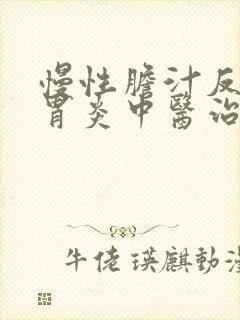 慢性膽汁反
胃炎中醫治
牛佬瑛麒動漫